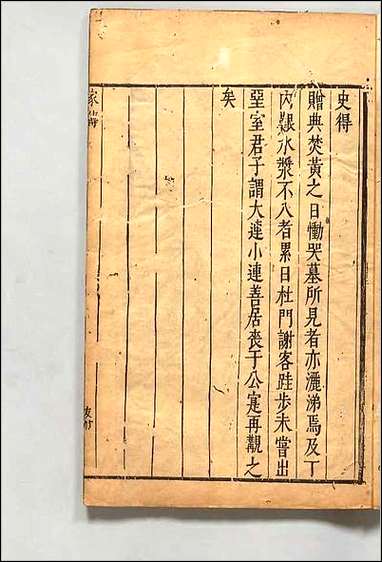 史得
贈典焚黃之日慟哭墓所見者亦灑涕焉及丁
內艱水漿不入者累日杜門謝客跬步未嘗出
堊室君子謂大連小連善居喪于公寔再觀之
矣
家傳